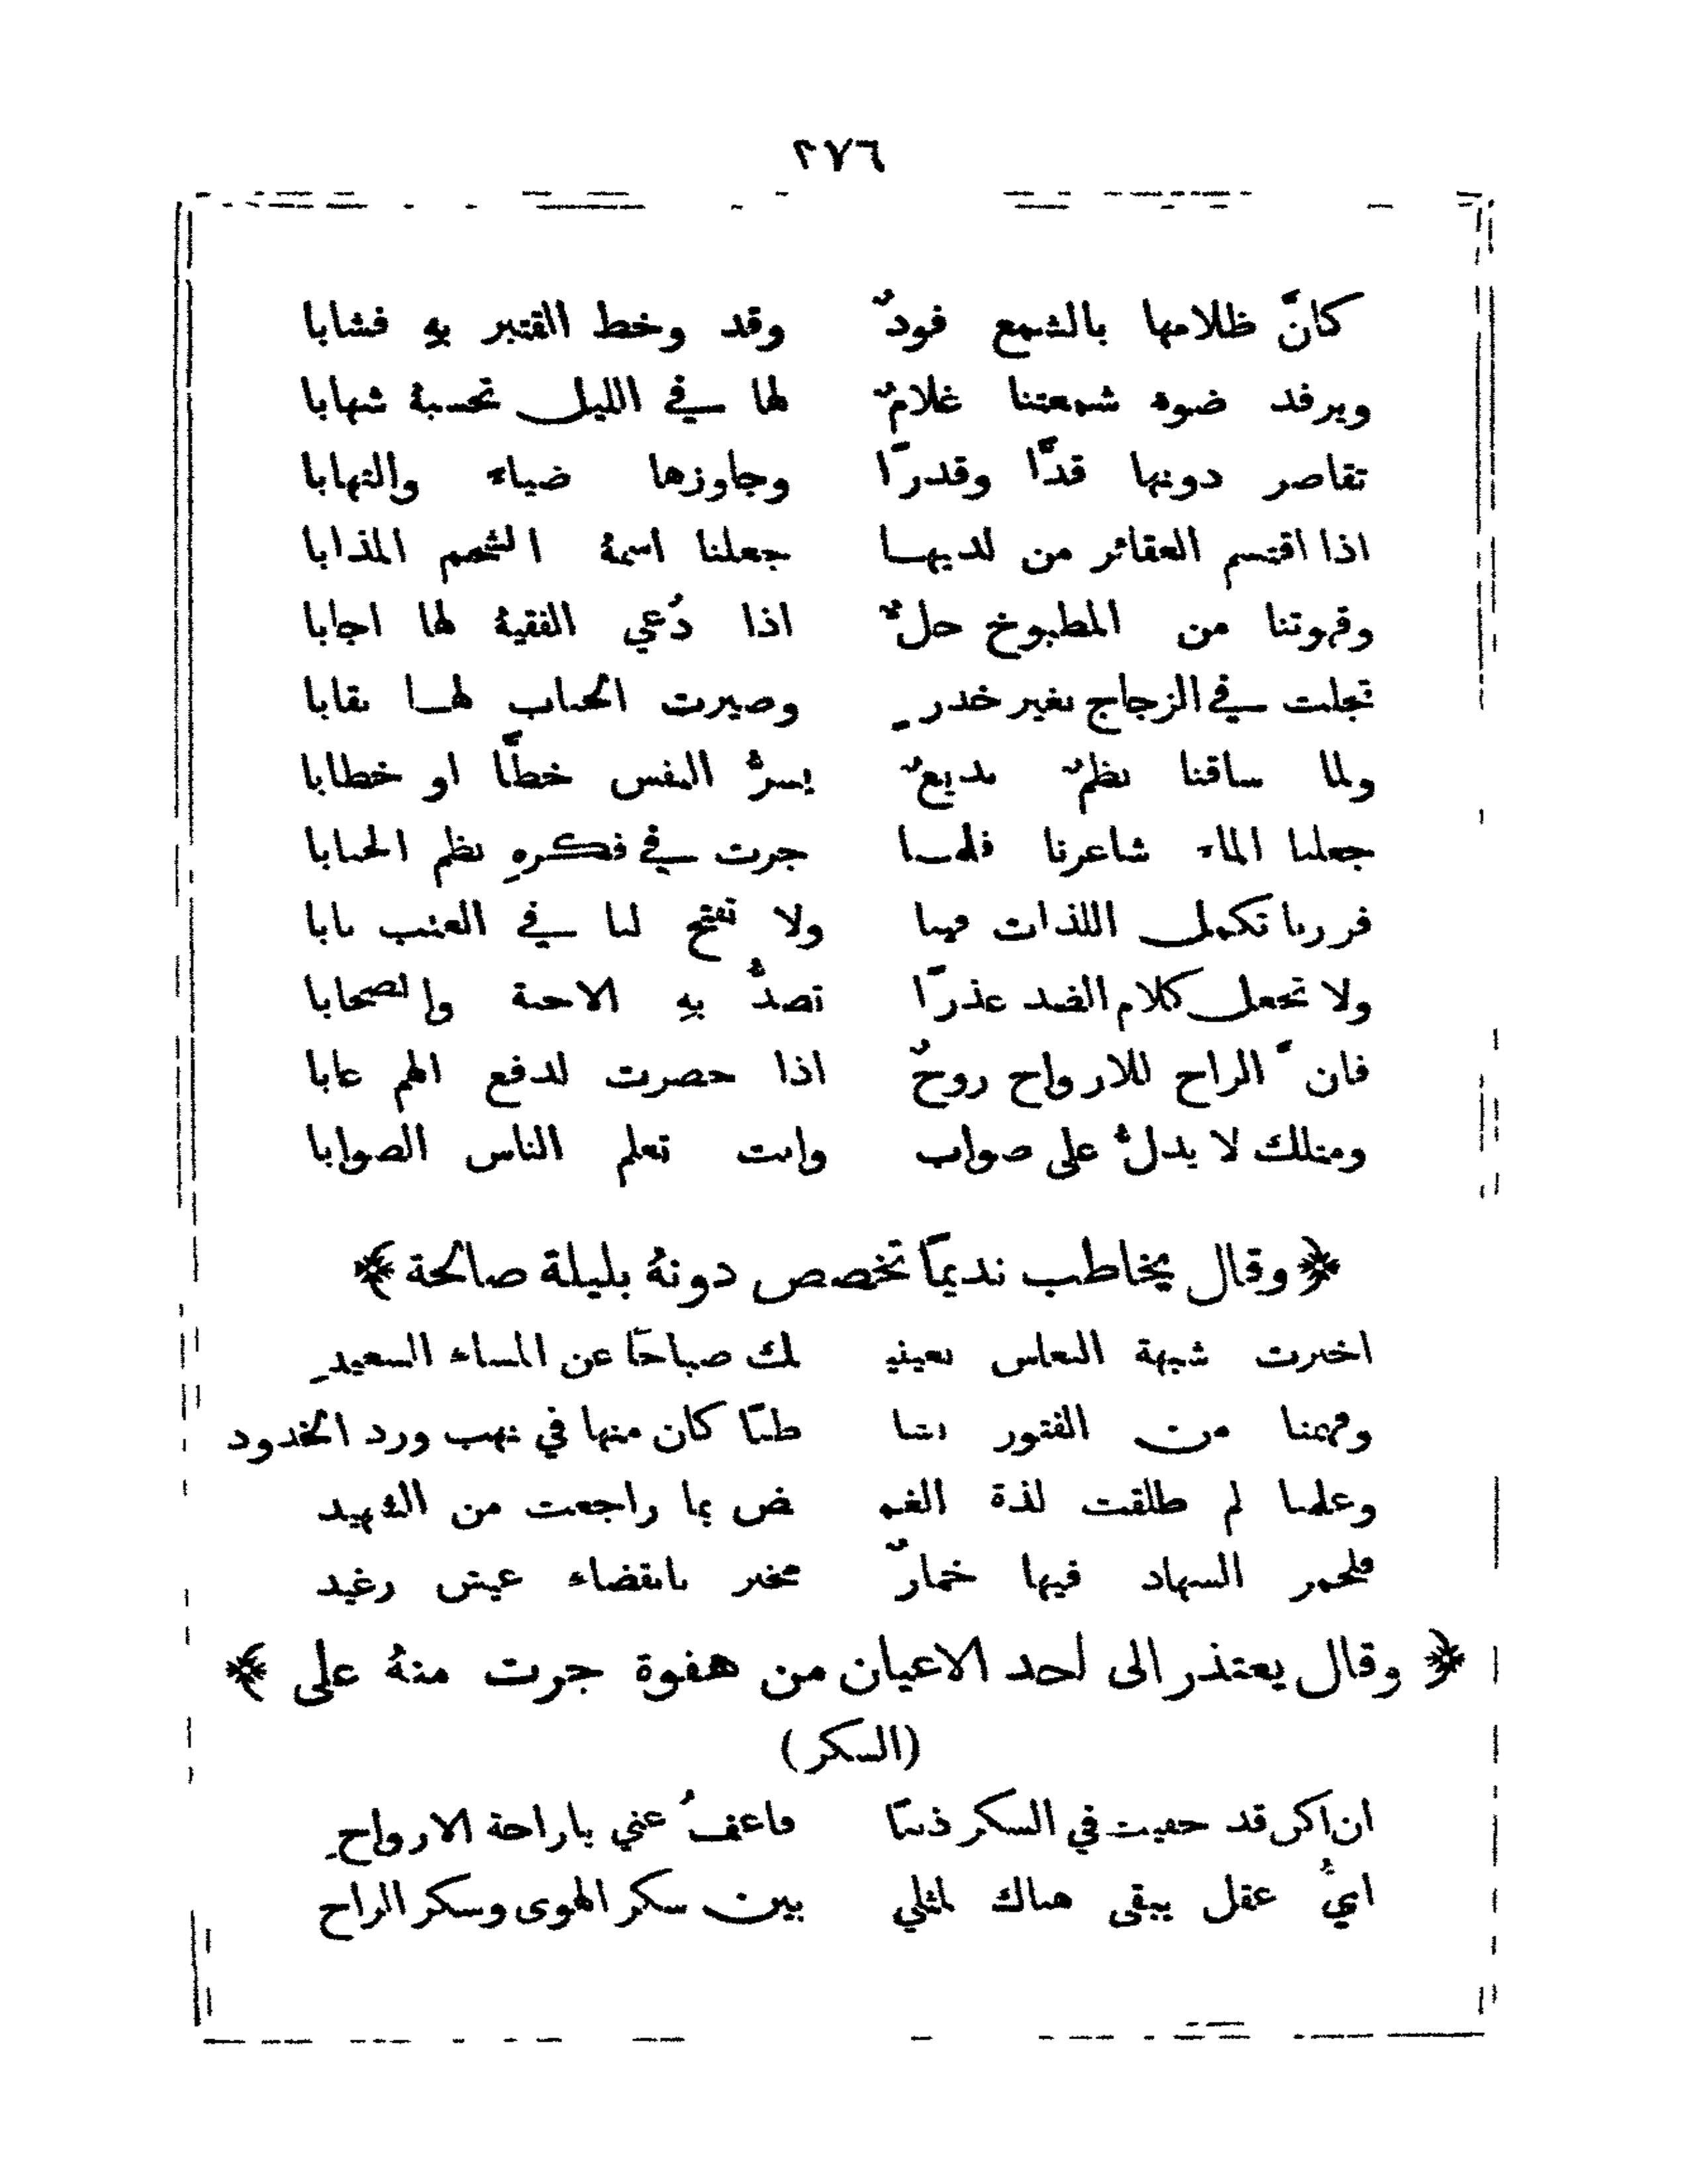 ٢٧٦
كانَّ ظلامها بالشمع فودٌ وقد وخط القتير بهِ فشابا
ويرفد ضوء شمعتنا غلامٌ لها في الليل تحسبهُ شهابا
تقاصر دونها قدًّا وقدرًا وجاوزها ضياء والتهابا
اذا اقتسم العقائر من لديها جعلنا اسمهُ الشحم المذابا
وقهوتنا من المطبوخ حلٌ اذا دُعي الفقيهُ لها اجابا
تجلت في الزجاج بغير خدرٍ وصيرت الحباب لها نقابا
ولما ساقنا نظمٌ بديعٌ يسرُّ النفس خطًّا او خطابا
جعلنا الماء شاعرنا فلما جرت في فكرهِ نظم الحبابا
فزرنا تكمل اللذات فينا ولا تفتح لنا في العتب بابا
ولا تجعل كلام الضد عذرًا تصدُّ بهِ الاحبة والصحابا
فانَّ الراح للارواح روحٌ اذا حضرت لدفع الهم غابا
ومثلك لا يدلُّ على صواب وانت تعلم الناس الصوابا
﴿وقال يخاطب نديمًا تخصص دونهُ بليلة صالحة﴾
اخبرت شبهة النعاس بعيني لك صباحًا عن المساء السعيدِ
وفهمنا من الفتور بشا طبًا كان منها في نهب ورد الخدود
وعلمنا لم طلقت لذة الغم ض بما راجعت من التهيد
فلخمر السهاد فيها خمارٌ مخبر بانقضاء عيش رغيد
﴿ وقال يعتذر الى احد الاعيان من هفوة جرت منهُ على ﴾
(السكر)
ان اكن قد جنيت في السكر ذنبًا فاعفُ عني يا راحة الارواحِ
ايُّ عقل يبقى هناك لمثلي بين سكر الهوى وسكر الراح